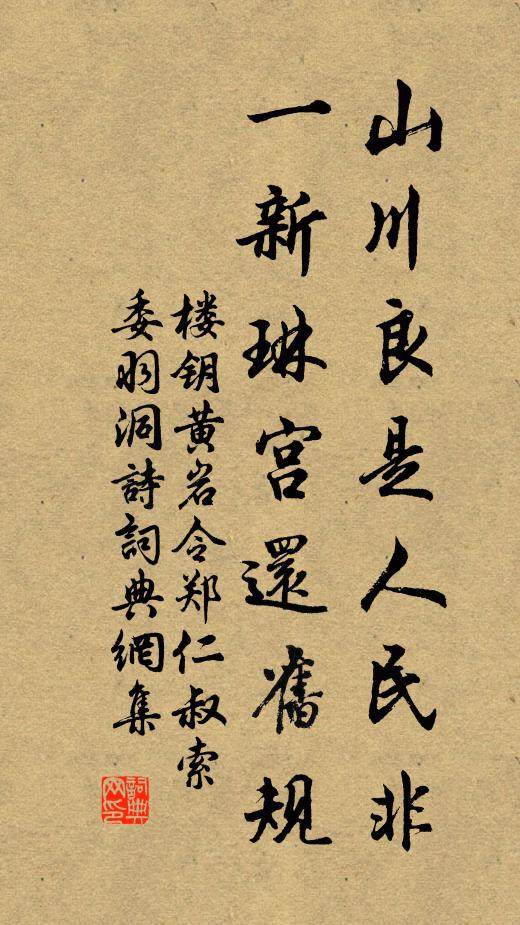 山川良是人民非
一新琳宫還舊規
楼钥黄岩令郑仁叔索
委羽洞詩詞典網集
詞典网印